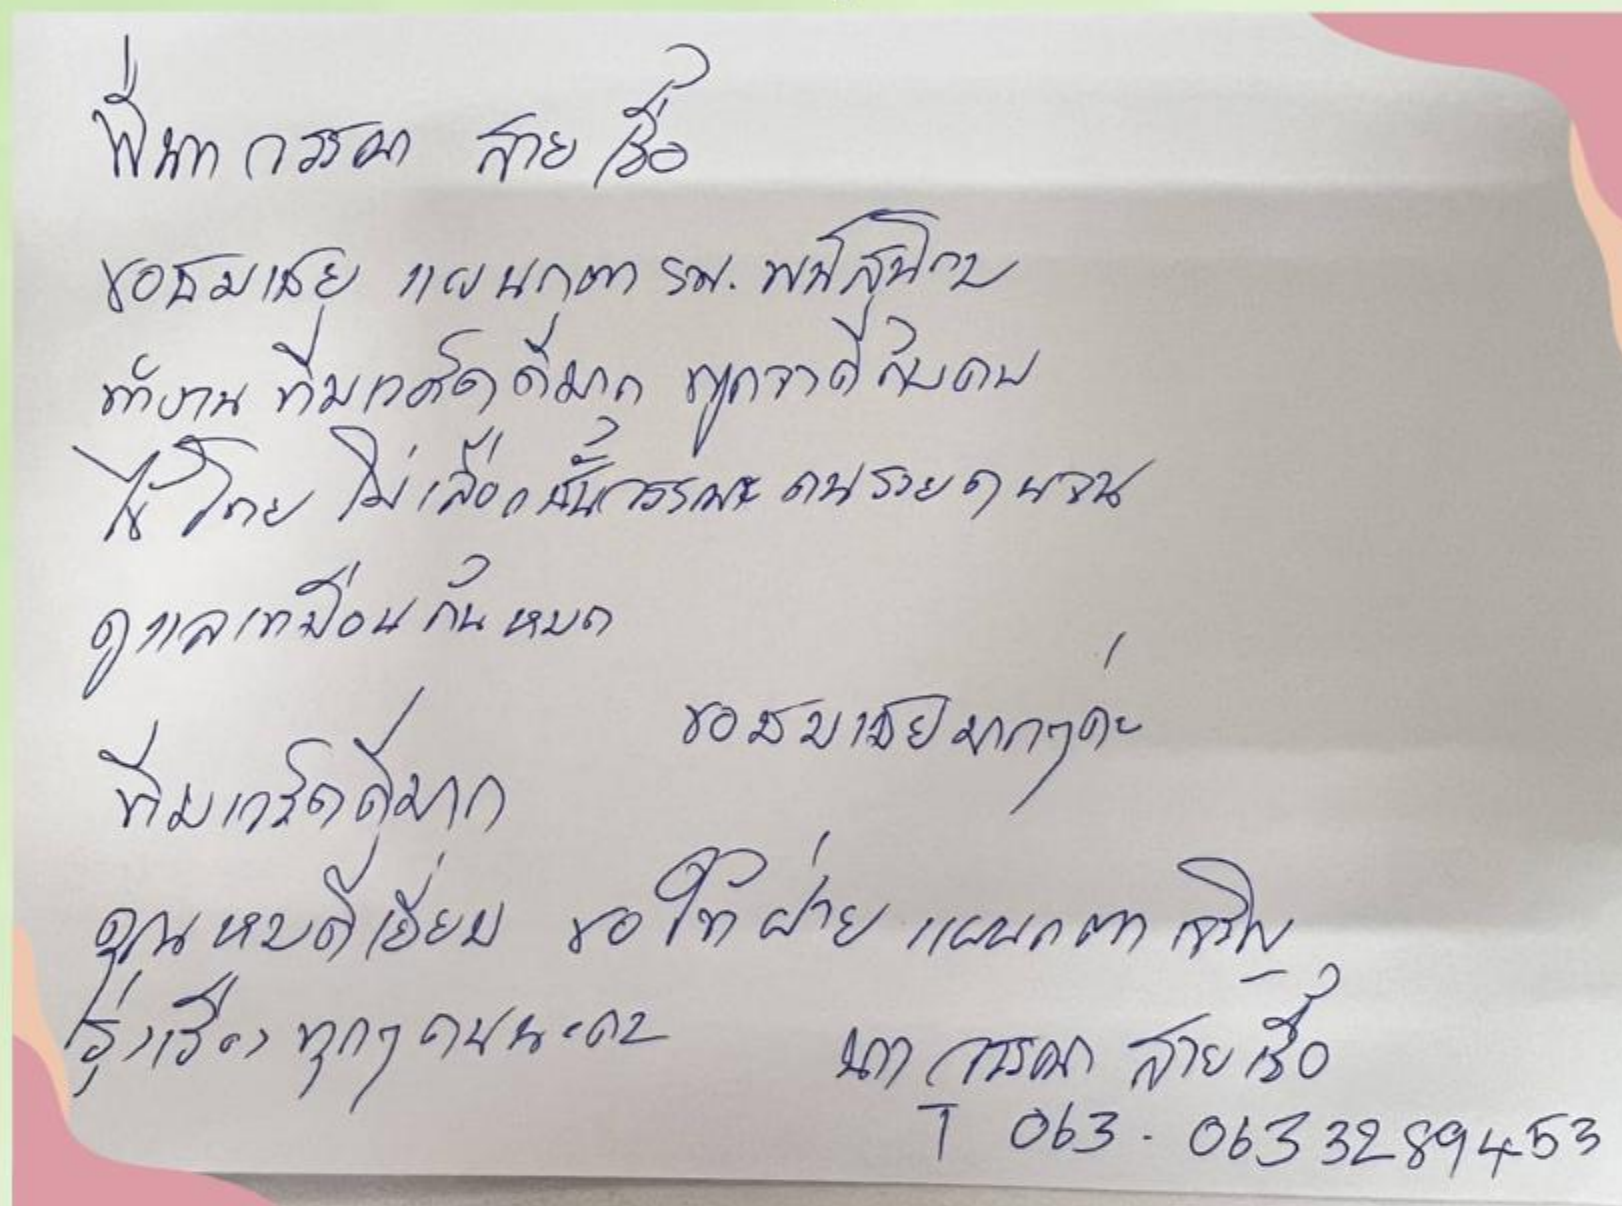 พี่นา วรรณา สายเชื้อ
ขอชมเชย แผนกตา รพ.
ทำงาน ทีมเวิร์ค ดีมาก พูดจาดี กับคน
ไข้ ไม่เลือกชั้นวรรณะ คนรวยคนจน
ดูแลเหมือนกันหมด
ขอชมเชยมากๆค่ะ
ทีมเวิร์คดีมาก
คุณหมอดีเยี่ยม ขอให้ฝ่าย แผนกตา เจริญ
รุ่งเรือง ทุกๆคนนะคะ
นา วรรณา สายเชื้อ
T 063 - 0633289453